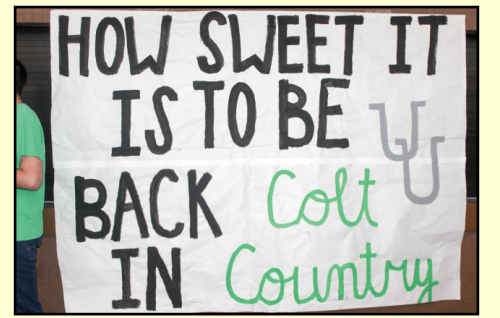 HOW SWEET IT
IS TO BE
BACK Colt
IN Country